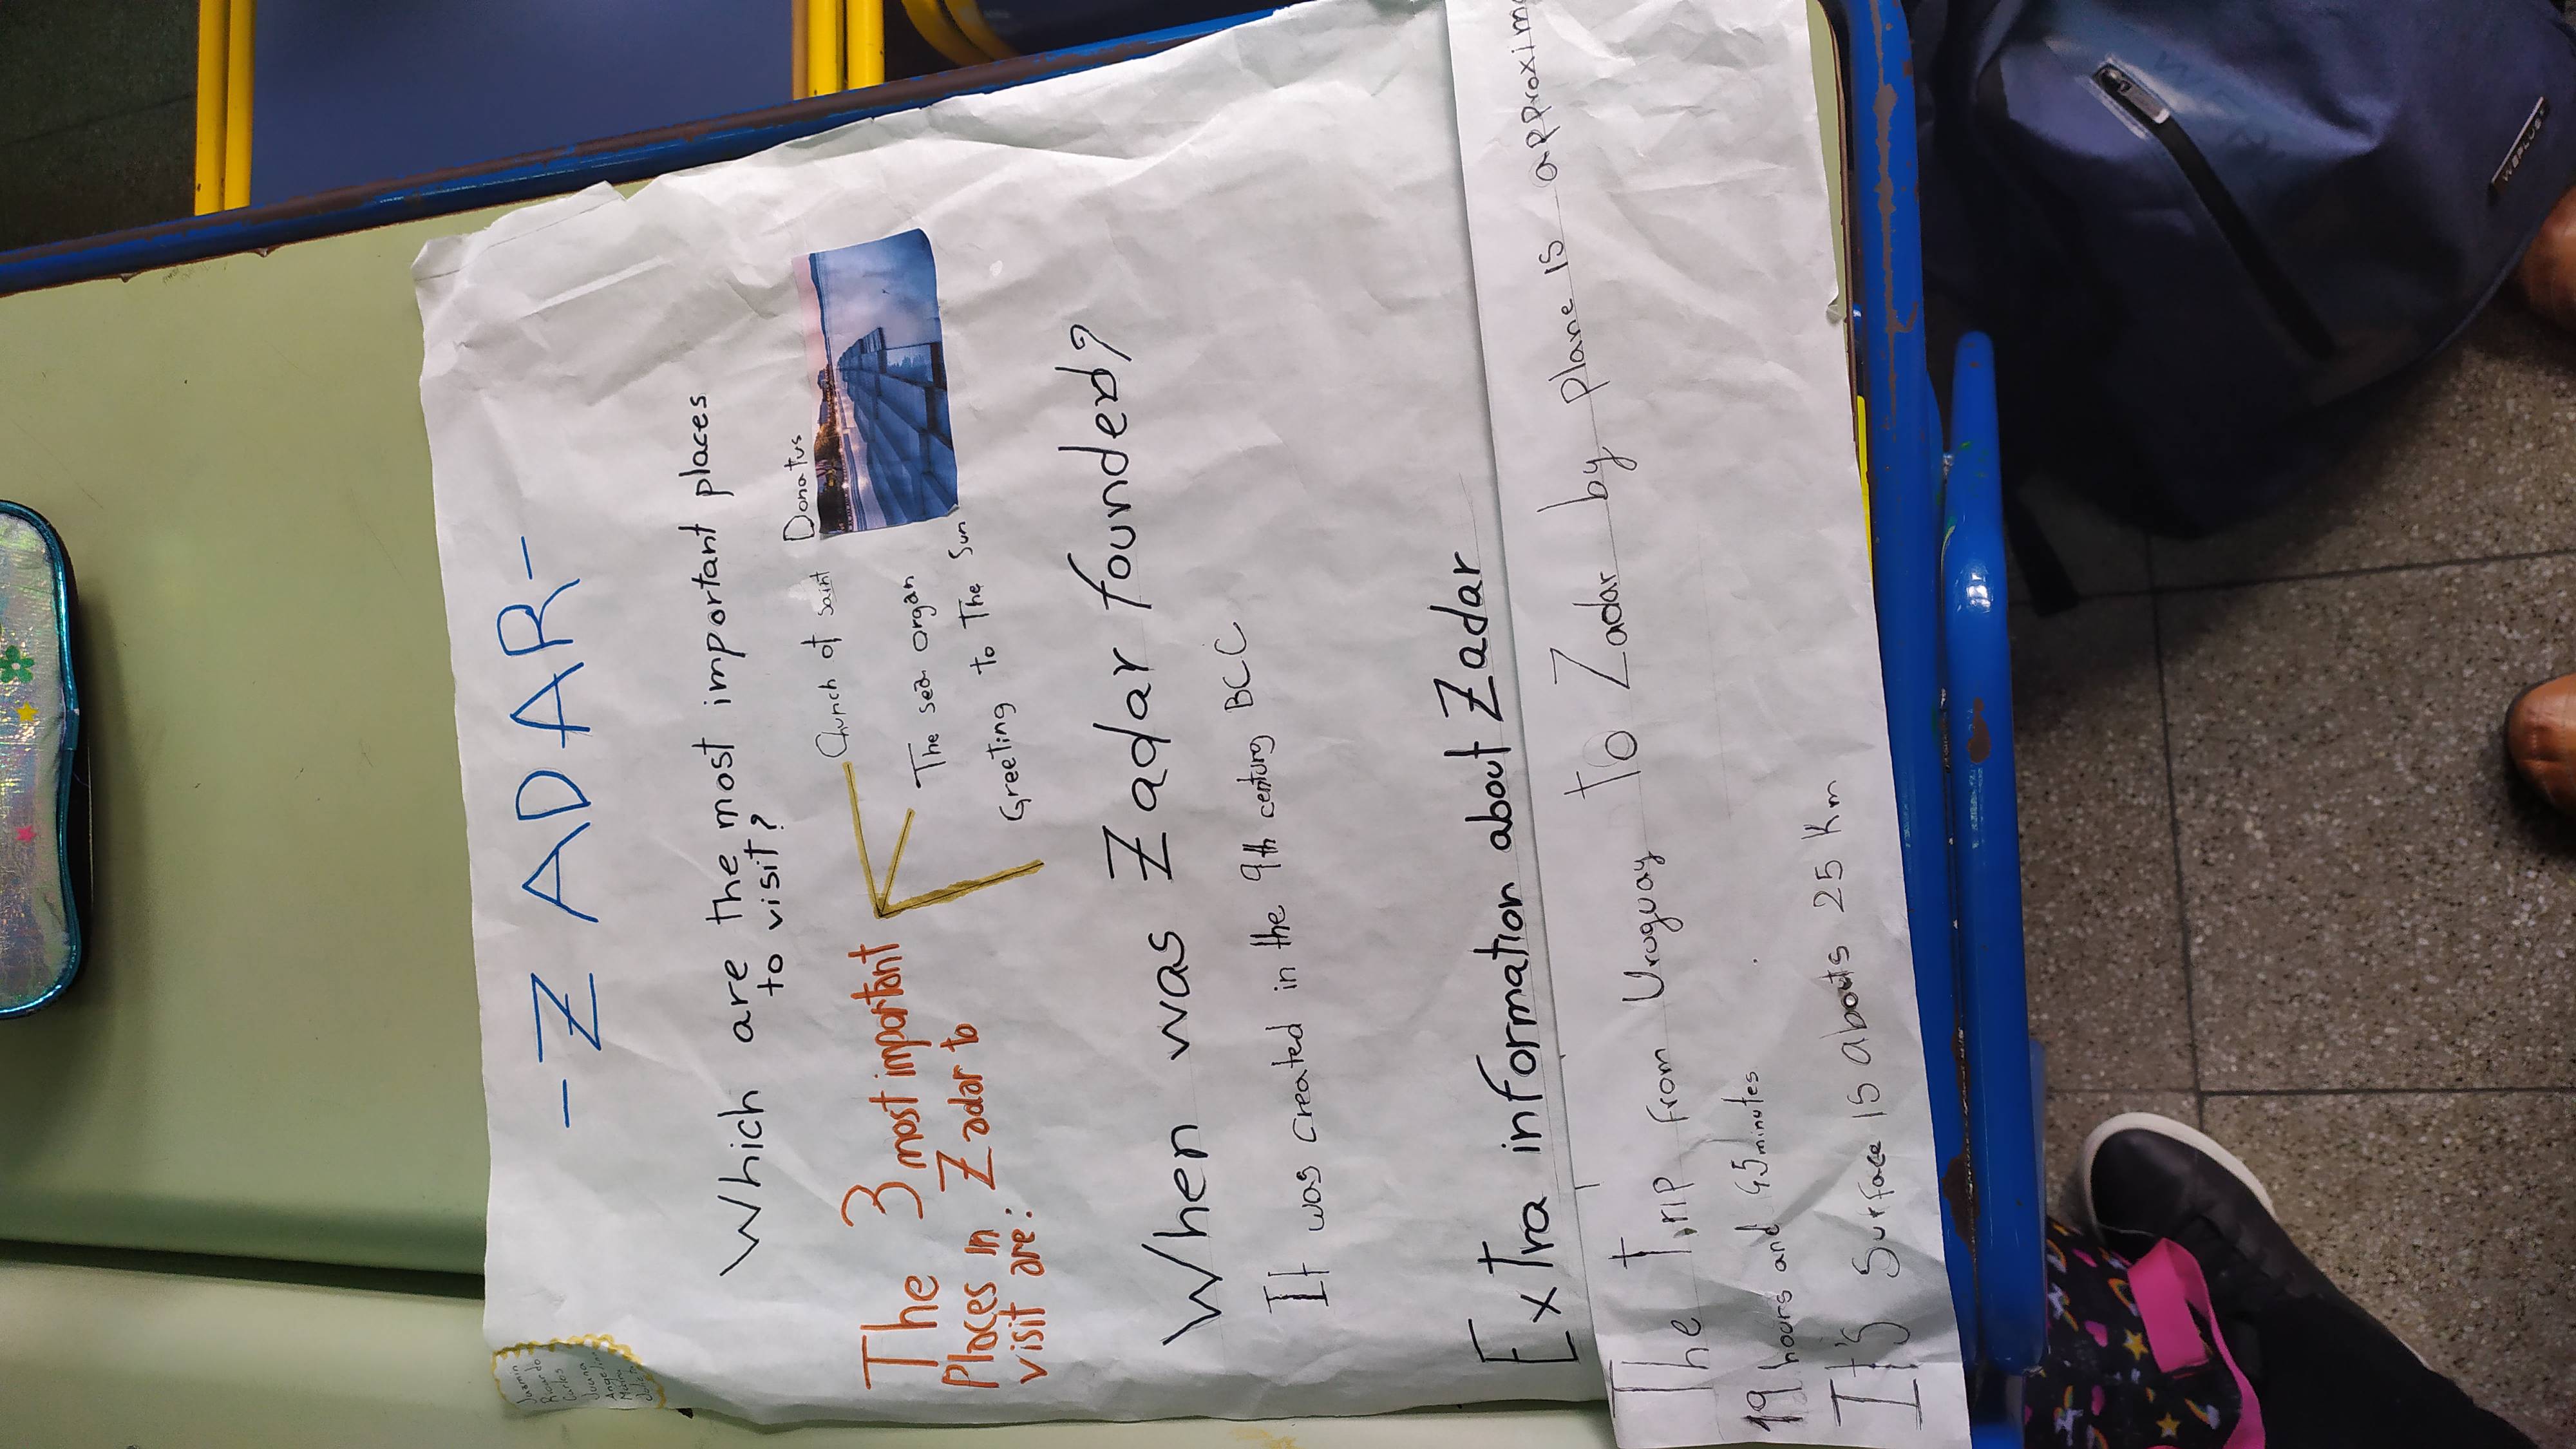 - Z ADAR -
Which are the most important places
to visit?
The 3 most important
Places in Zadar to
visit are:
Church of saint Donatus
The sea organ
Greeting to The Sun
When was Zadar founded?
It was created in the 9th century BCC
Extra information about Zadar
The Trip From Uruguay To Zadar by plane is approxim
19 hours and 45 minutes
It's Surface is abouts 25 Km
Jazmin
Ricardo
Carlos
Juana
WEPLUS